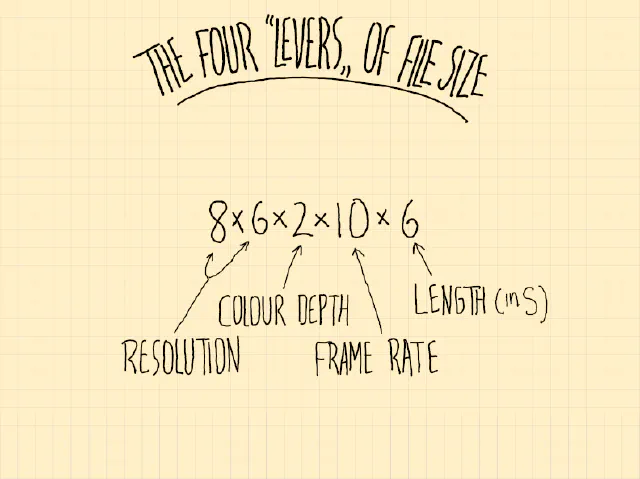 THE FOUR “LEVERS„ OF FILE SIZE
8 × 6 × 2 × 10 × 6
COLOUR DEPTH
LENGTH (in S)
RESOLUTION
FRAME RATE